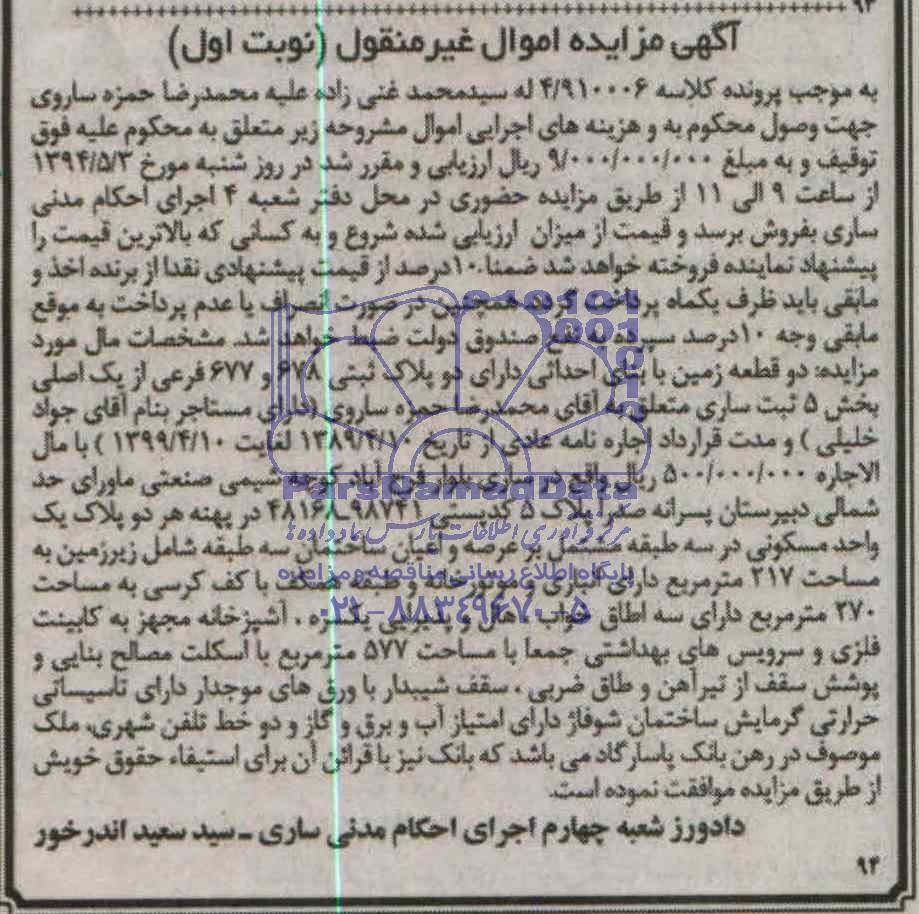 ۹۳
آگهی مزایده اموال غیرمنقول (نوبت اول)
به موجب پرونده کلاسه ۴/۹۱۰۰۰۶ له سیدمحمد غنی زاده علیه محمدرضا حمزه ساروی
جهت وصول محکوم به و هزینه های اجرایی اموال مشروحه زیر متعلق به محکوم علیه فوق
توقیف و به مبلغ ۹/۰۰۰/۰۰۰/۰۰۰ ریال ارزیابی و مقرر شد در روز شنبه مورخ ۱۳۹۴/۵/۳
از ساعت ۹ الی ۱۱ از طریق مزایده حضوری در محل دفتر شعبه ۴ اجرای احکام مدنی
ساری بفروش برسد و قیمت از میزان ارزیابی شده شروع و به کسانی که بالاترین قیمت را
پیشنهاد نماینده فروخته خواهد شد ضمنا ۱۰درصد از قیمت پیشنهادی نقدا از برنده اخذ و
مابقی باید ظرف یکماه پرداخت گردد همچنین در صورت انصراف یا عدم پرداخت به موقع
مابقی وجه ۱۰درصد سپرده به نفع صندوق دولت ضبط خواهد شد. مشخصات مال مورد
مزایده: دو قطعه زمین با بنای احداثی دارای دو پلاک ثبتی ۶۷۸ و ۶۷۷ فرعی از یک اصلی
بخش ۵ ثبت ساری متعلق به آقای محمدرضا حمزه ساروی (دارای مستاجر بنام آقای جواد
خلیلی ) و مدت قرارداد اجاره نامه عادی از تاریخ ۱۳۸۹/۴/۱۰ لغایت ۱۳۹۹/۴/۱۰ ) با مال
الاجاره ۵۰۰/۰۰۰/۰۰۰ ریال واقع در ساری بلوار فرح آباد کوچه شیمی صنعتی ماورای حد
شمالی دبیرستان پسرانه صدرا پلاک ۵ کدپستی ۹۸۷۴۱ـ۴۸۱۶۸ در پهنه هر دو پلاک یک
واحد مسکونی در سه طبقه مشتمل بر عرصه و اعیان ساختمان سه طبقه شامل زیرزمین به
مساحت ۲۱۷ مترمربع دارای و موتورخانه و طبقه همکف با کف کرسی به مساحت
۲۷۰ مترمربع دارای سه اطاق خواب ، هال و پذیرایی یکسره ، آشپزخانه مجهز به کابینت
فلزی و سرویس های بهداشتی جمعا با مساحت ۵۷۷ مترمربع با اسکلت مصالح بنایی و
پوشش سقف از تیرآهن و طاق ضربی ، سقف شیبدار با ورق های موجدار دارای تاسیساتی
حرارتی گرمایش ساختمان شوفاژ دارای امتیاز آب و برق و گاز و دو خط تلفن شهری، ملک
موصوف در رهن بانک پاسارگاد می باشد که بانک نیز با قرائن آن برای استیفاء حقوق خویش
از طریق مزایده موافقت نموده است.
دادورز شعبه چهارم اجرای احکام مدنی ساری ـ سید سعید اندرخور
۹۴
ParsNamadData
مرکز فرآوری اطلاعات پارس نماد داده ها
پایگاه اطلاع رسانی مناقصه و مزایده
۰۲۱-۸۸۳۴۹۶۷۰-۵